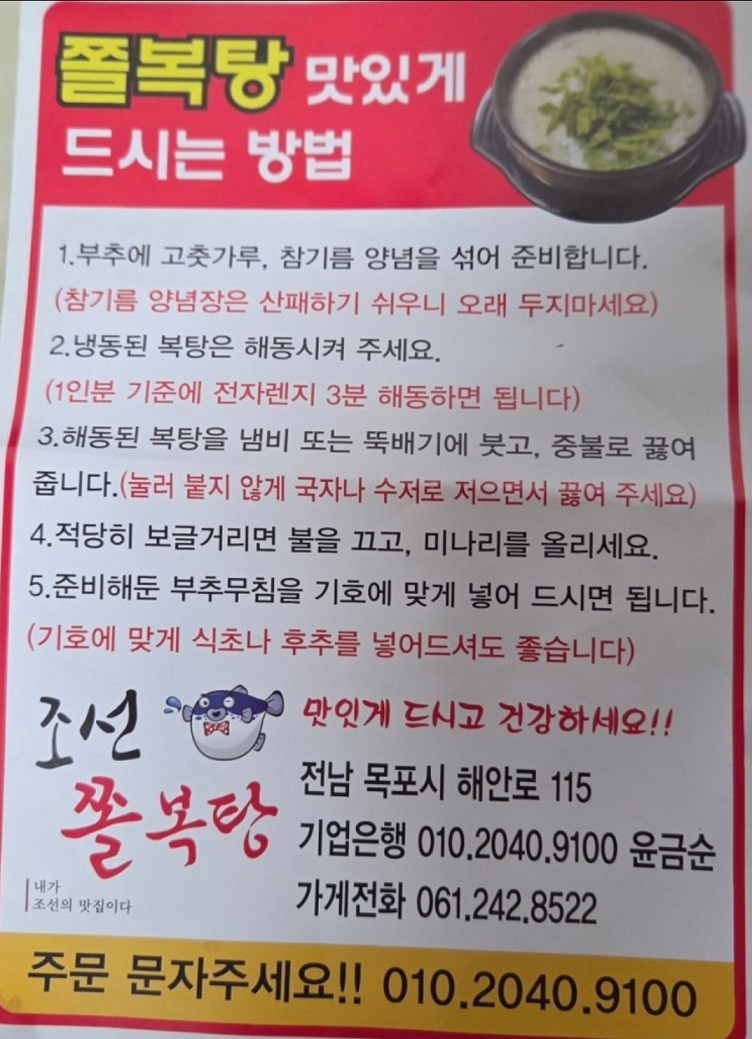 쫄복탕 맛있게
드시는 방법
1.부추에 고춧가루, 참기름 양념을 섞어 준비합니다.
(참기름 양념장은 산패하기 쉬우니 오래 두지마세요)
2.냉동된 복탕은 해동시켜 주세요.
(1인분 기준에 전자렌지 3분 해동하면 됩니다)
3.해동된 복탕을 냄비 또는 뚝배기에 붓고, 중불로 끓여
줍니다.(눌러 붙지 않게 국자나 수저로 저으면서 끓여 주세요)
4.적당히 보글거리면 불을 끄고, 미나리를 올리세요.
5.준비해둔 부추무침을 기호에 맞게 넣어 드시면 됩니다.
(기호에 맞게 식초나 후추를 넣어드셔도 좋습니다)
조선
쫄복탕
내가
조선의 맛집이다
맛있게 드시고 건강하세요!!
전남 목포시 해안로 115
기업은행 010.2040.9100 윤금순
가게전화 061.242.8522
주문 문자주세요!! 010.2040.9100